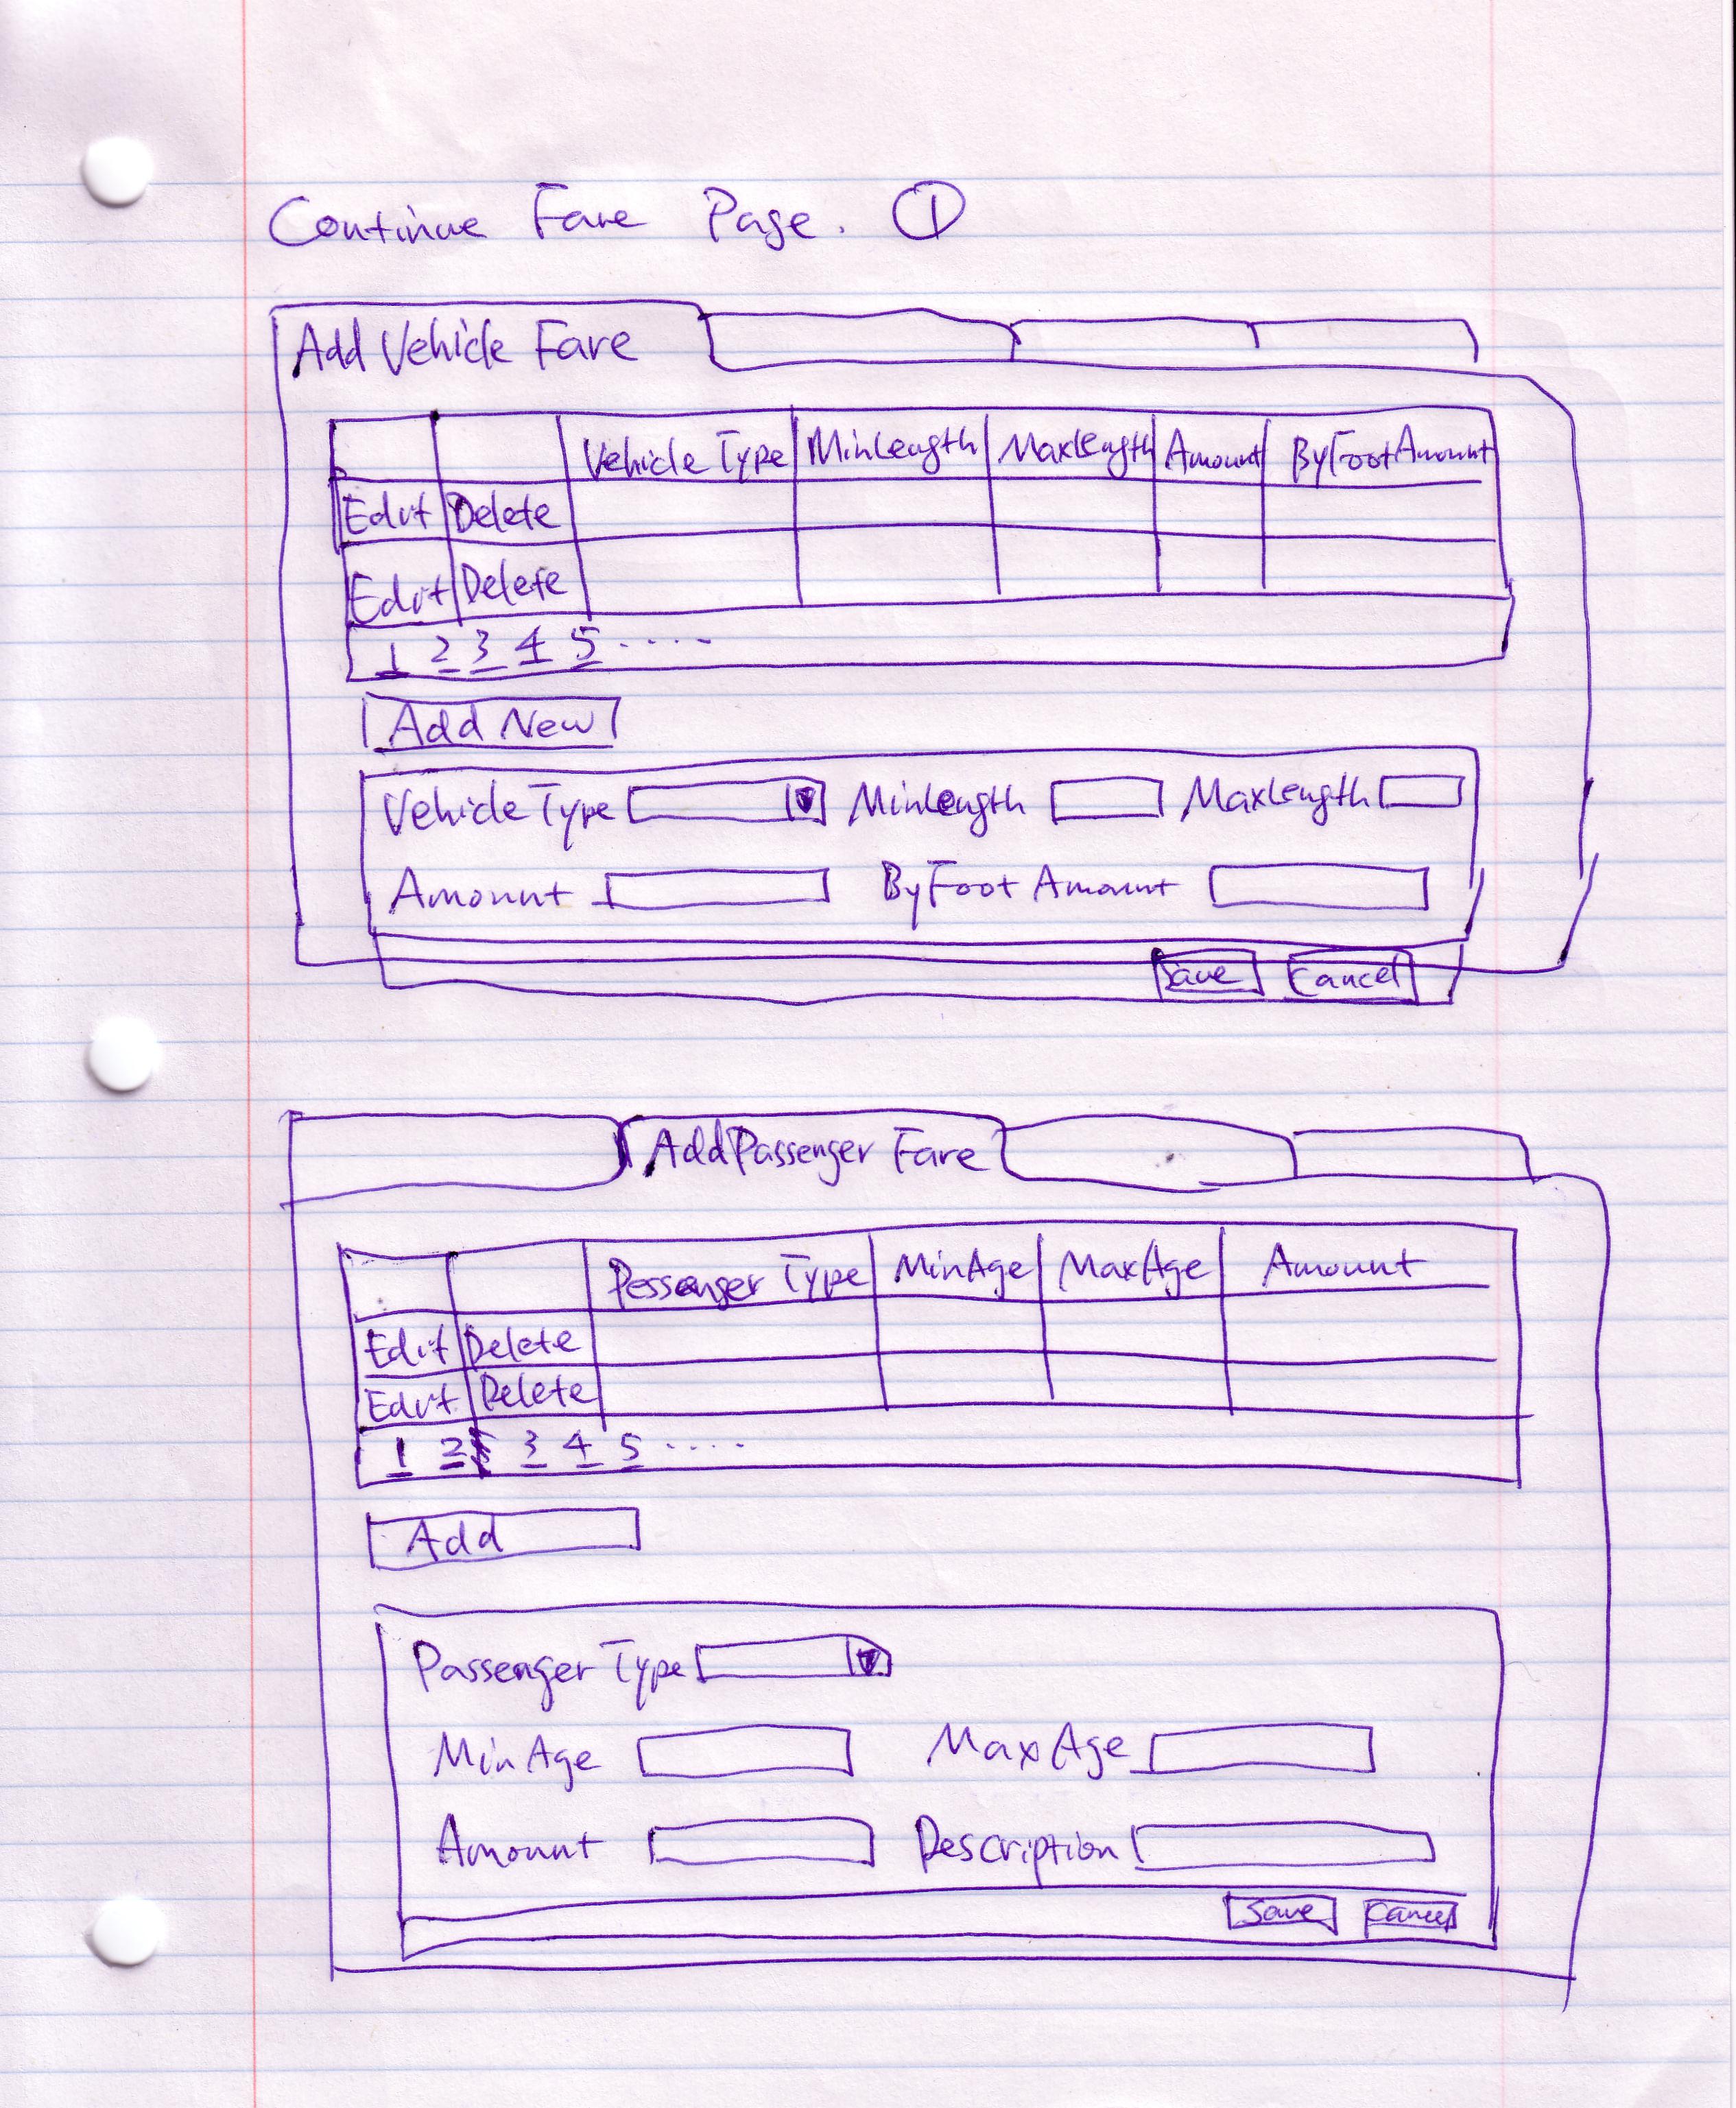 Continue Fare Page. ①
Add Vehicle Fare
Vehicle Type MinLength MaxLength Amount ByFootAmount
Edit Delete
Edit Delete
1 2 3 4 5 ....
Add New
Vehicle Type MinLength MaxLength
Amount ByFoot Amount
Save Cancel
Add Passenger Fare
Pessenger Type MinAge MaxAge Amount
Edit Delete
Edit Delete
1 2 3 4 5 ....
Add
Passenger Type
MinAge MaxAge
Amount Description
Save Cancel